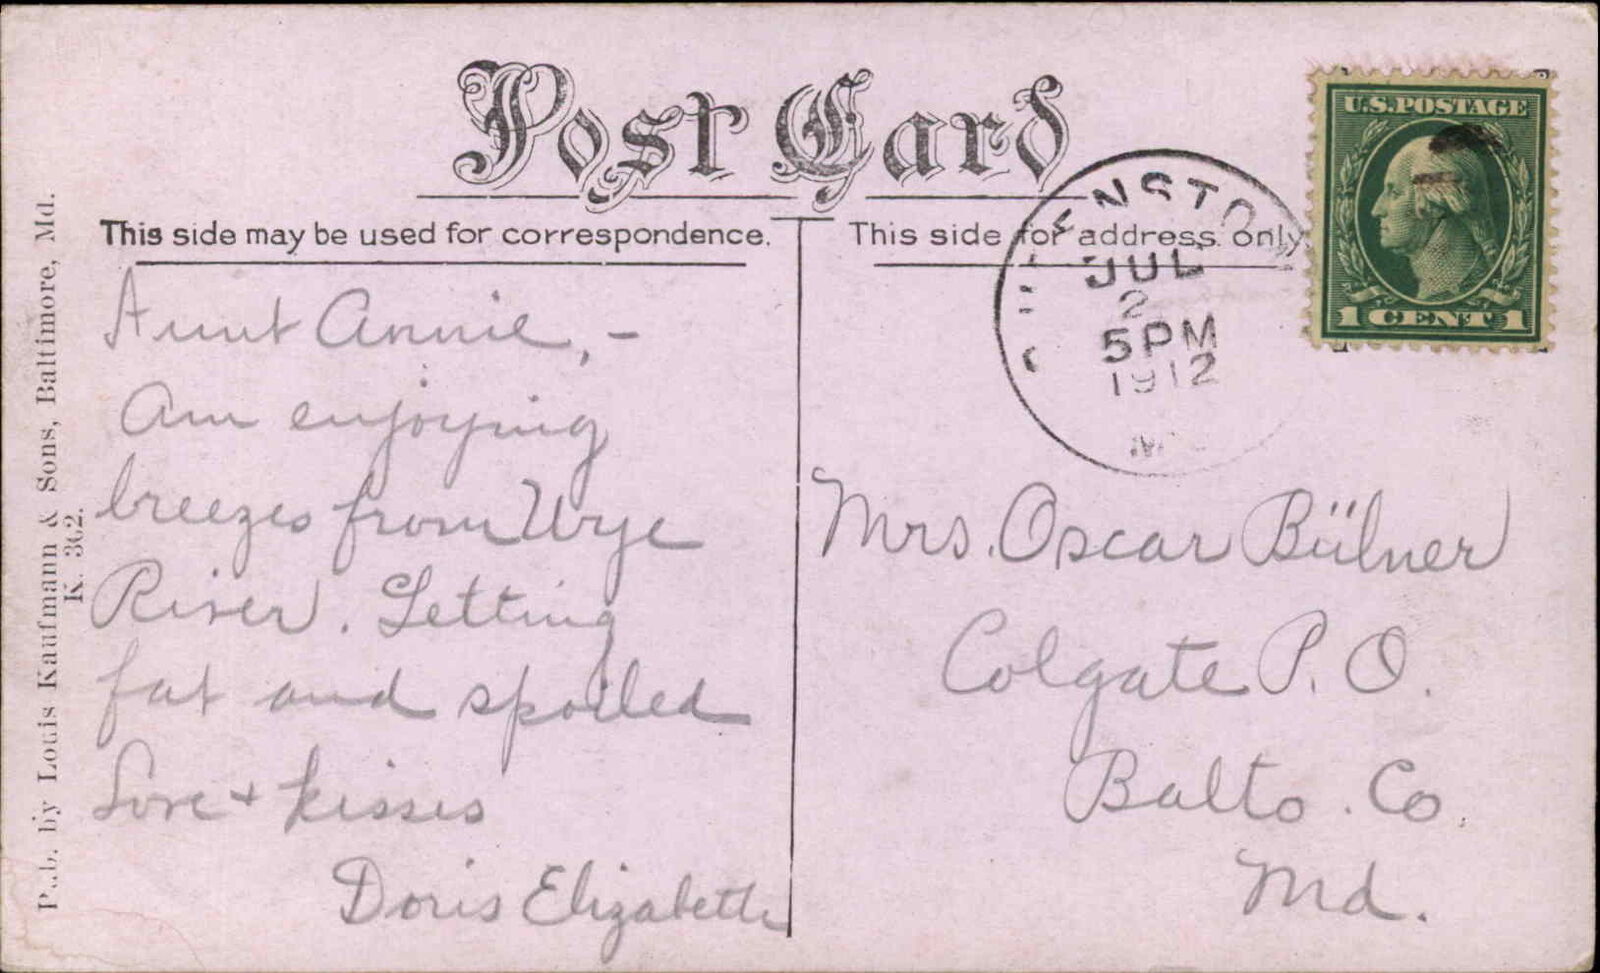 Post Card
This side may be used for correspondence.
This side for address only
U.S. POSTAGE
1 CENT 1
JUL
2
5 PM
1912
Aunt Annie, -
Am enjoying
breezes from Wye
River. Getting
fat and spoiled
Love + kisses
Doris Elizabeth
Mrs. Oscar Bülner
Colgate P. O.
Balto. Co.
Md.
Pub. by Louis Kaufmann & Sons, Baltimore, Md.
K. 362.